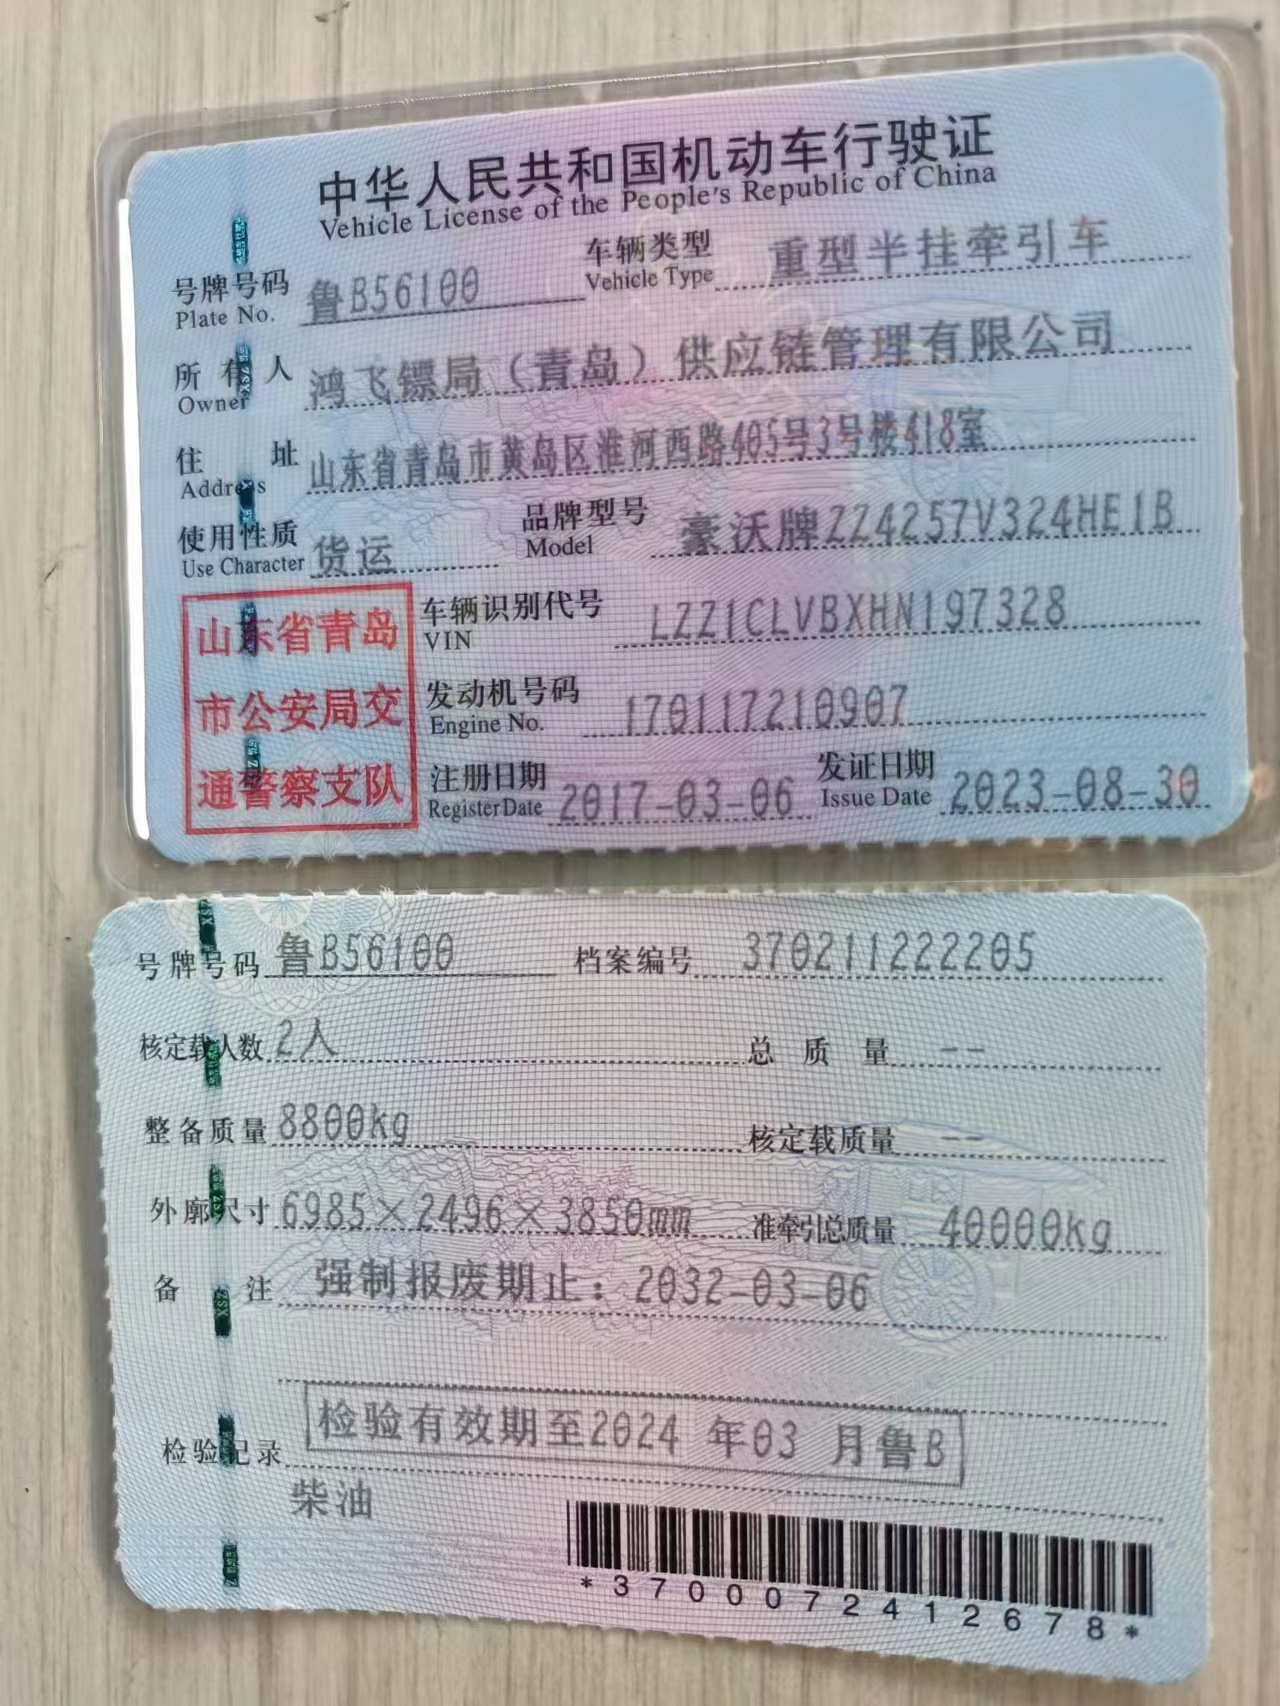 中华人民共和国机动车行驶证
Vehicle License of the People's Republic of China
号牌号码 鲁B56100 车辆类型 重型半挂牵引车
Plate No. Vehicle Type
所有人 鸿飞镖局（青岛）供应链管理有限公司
Owner
住址 山东省青岛市黄岛区淮河西路405号3号楼418室
Address
使用性质 货运 品牌型号 豪沃牌ZZ4257V324HE1B
Use Character Model
山东省青岛
市公安局交
通警察支队
车辆识别代号 LZZ1CLVBXHN197328
VIN
发动机号码 170117210907
Engine No.
注册日期 2017-03-06 发证日期 2023-08-30
Register Date Issue Date
号牌号码 鲁B56100 档案编号 370211222205
核定载人数 2人 总质量 --
整备质量 8800kg 核定载质量 --
外廓尺寸 6985×2496×3850mm 准牵引总质量 40000kg
备注 强制报废期止：2032-03-06
检验记录 检验有效期至2024年03月鲁B
柴油
*3700072412678*